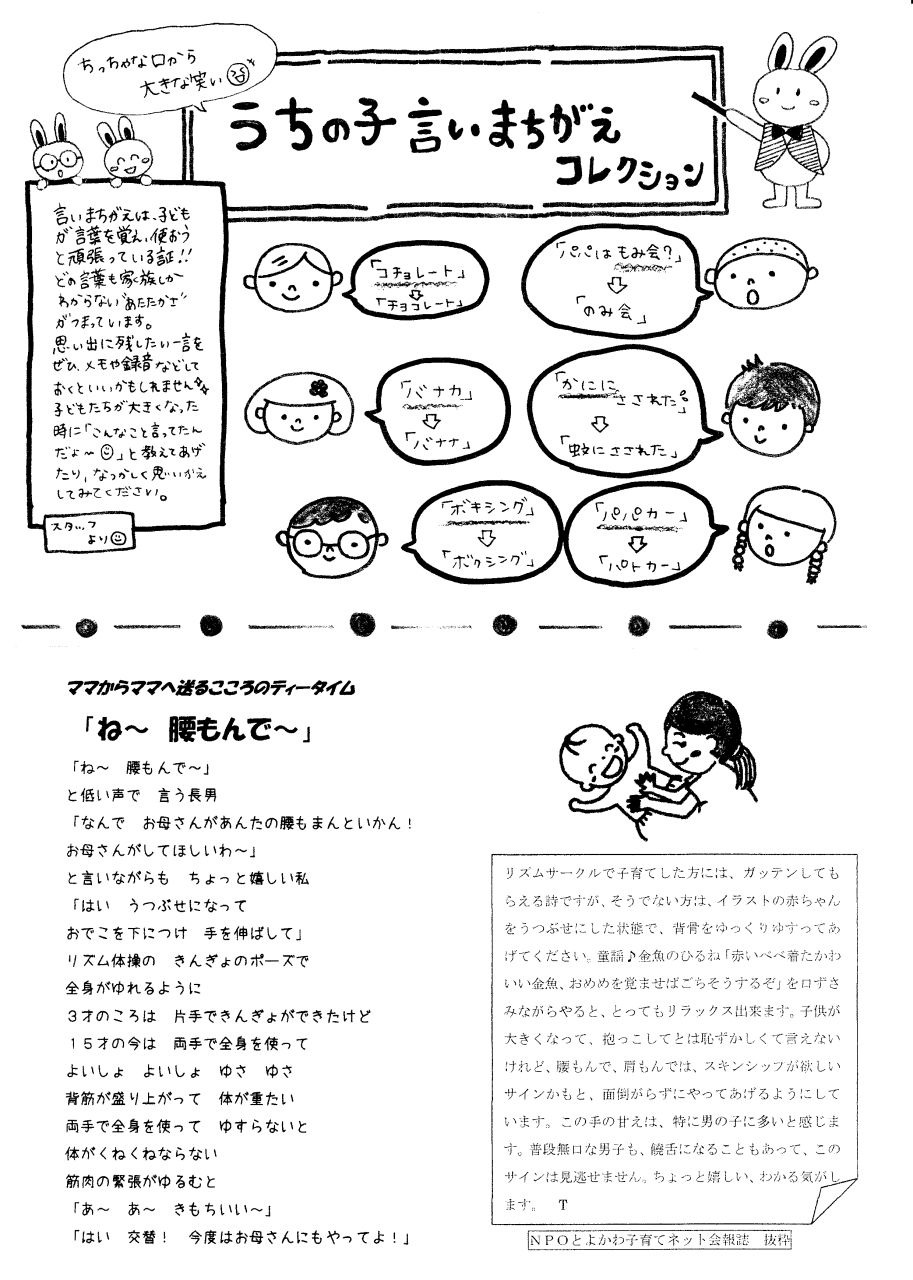 ちっちゃな口から
大きな笑い
うちの子言いまちがえ
コレクション
言いまちがえは、子ども
が言葉を覚え、使おう
と頑張っている証!!
どの言葉も家族しか
わからない"あたたかさ"
がつまっています。
思い出に残したい一言を
ぜひ、メモや録音などして
おくといいかもしれません
子どもたちが大きくなった
時に「こんなこと言ってたん
だよ～☺」と教えてあげ
たり、なつかしく思いかえ
してみてください。
スタッフ
より☺
「コチョレート」
⇩
「チョコレート」
「パパはもみ会?」
⇩
「のみ会」
「バナカ」
⇩
「バナナ」
「かにに さされた」
⇩
「蚊にさされた」
「ボキシング」
⇩
「ボクシング」
「パパカー」
⇩
「パトカー」
ママからママへ送るこころのティータイム
「ね～　腰もんで～」
「ね～　腰もんで～」
と低い声で　言う長男
「なんで　お母さんがあんたの腰もまんといかん！
お母さんがしてほしいわ～」
と言いながらも　ちょっと嬉しい私
「はい　うつぶせになって
おでこを下につけ　手を伸ばして」
リズム体操の　きんぎょのポーズで
全身がゆれるように
３才のころは　片手できんぎょができたけど
１５才の今は　両手で全身を使って
よいしょ　よいしょ　ゆさ　ゆさ
背筋が盛り上がって　体が重たい
両手で全身を使って　ゆすらないと
体がくねくねならない
筋肉の緊張がゆるむと
「あ～　あ～　きもちいい～」
「はい　交替！　今度はお母さんにもやってよ！」
リズムサークルで子育てした方には、ガッテンしても
らえる詩ですが、そうでない方は、イラストの赤ちゃん
をうつぶせにした状態で、背骨をゆっくりゆすってあ
げてください。童謡♪金魚のひるね「赤いべべ着たかわ
いい金魚、おめめを覚ませばごちそうするぞ」を口ずさ
みながらやると、とってもリラックス出来ます。子供が
大きくなって、抱っこしてとは恥ずかしくて言えない
けれど、腰もんで、肩もんでは、スキンシップが欲しい
サインかもと、面倒がらずにやってあげるようにして
います。この手の甘えは、特に男の子に多いと感じま
す。普段無口な男子も、饒舌になることもあって、この
サインは見逃せません。ちょっと嬉しい、わかる気がし
ます。　T
ＮＰＯとよかわ子育てネット会報誌　抜粋